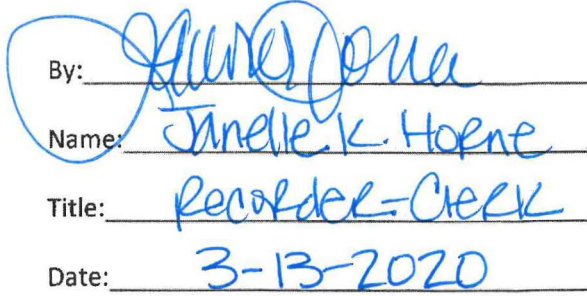 By:
Name: Janelle K. Horne
Title: Recorder-Clerk
Date: 3-13-2020